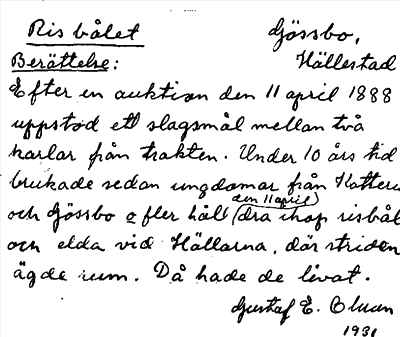 Ris bålet
Gössbo,
Hällestad
Berättelse:
Efter en auktion den 11 april 1888
uppstod ett slagsmål mellan två
karlar från trakten. Under 10 års tid
brukade sedan ungdomar från
och Gössbo o fler håll (den 11 april) dra ihop risbål
och elda vid Hällarna, där striden
ägde rum. Då hade de livat.
Gustaf E.
1931